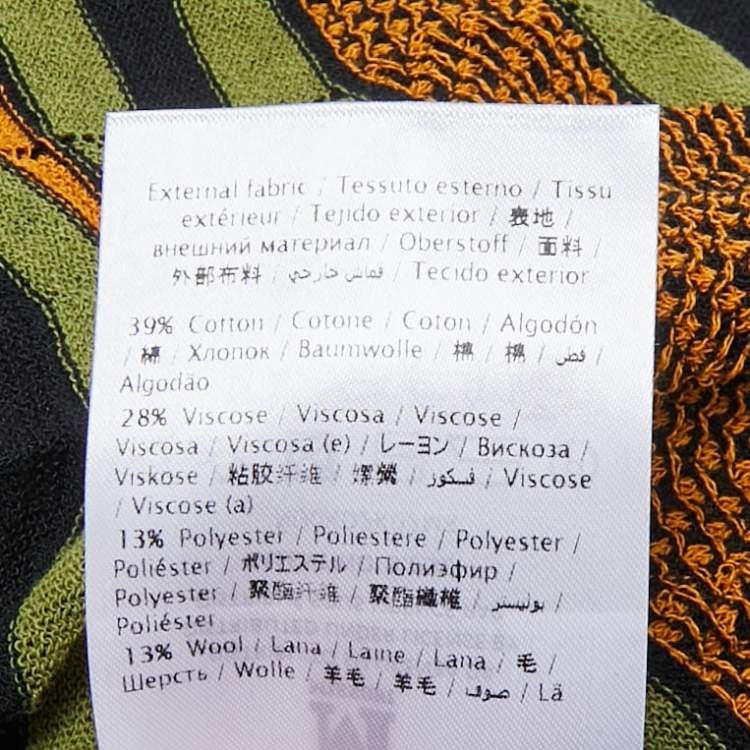 External fabric / Tessuto esterno / Tissu
extérieur / Tejido exterior / 表地 /
внешний материал / Oberstoff / 面料 /
外部布料 / قماش خارجي / Tecido exterior
39% Cotton / Cotone / Coton / Algodón
/ 綿 / Хлопок / Baumwolle / 棉 / 棉 / قطن /
Algodão
28% Viscose / Viscosa / Viscose /
Viscosa / Viscosa (e) / レーヨン / Вискоза /
Viskose / 粘胶纤维 / 嫘縈 / فسكوز / Viscose
/ Viscose (a)
13% Polyester / Poliestere / Polyester /
Poliéster / ポリエステル / Полиэфир /
Polyester / 聚酯纤维 / 聚酯纖維 / بوليستر /
Poliéster
13% Wool / Lana / Laine / Lana / 毛 /
Шерсть / Wolle / 羊毛 / 羊毛 / صوف / Lã